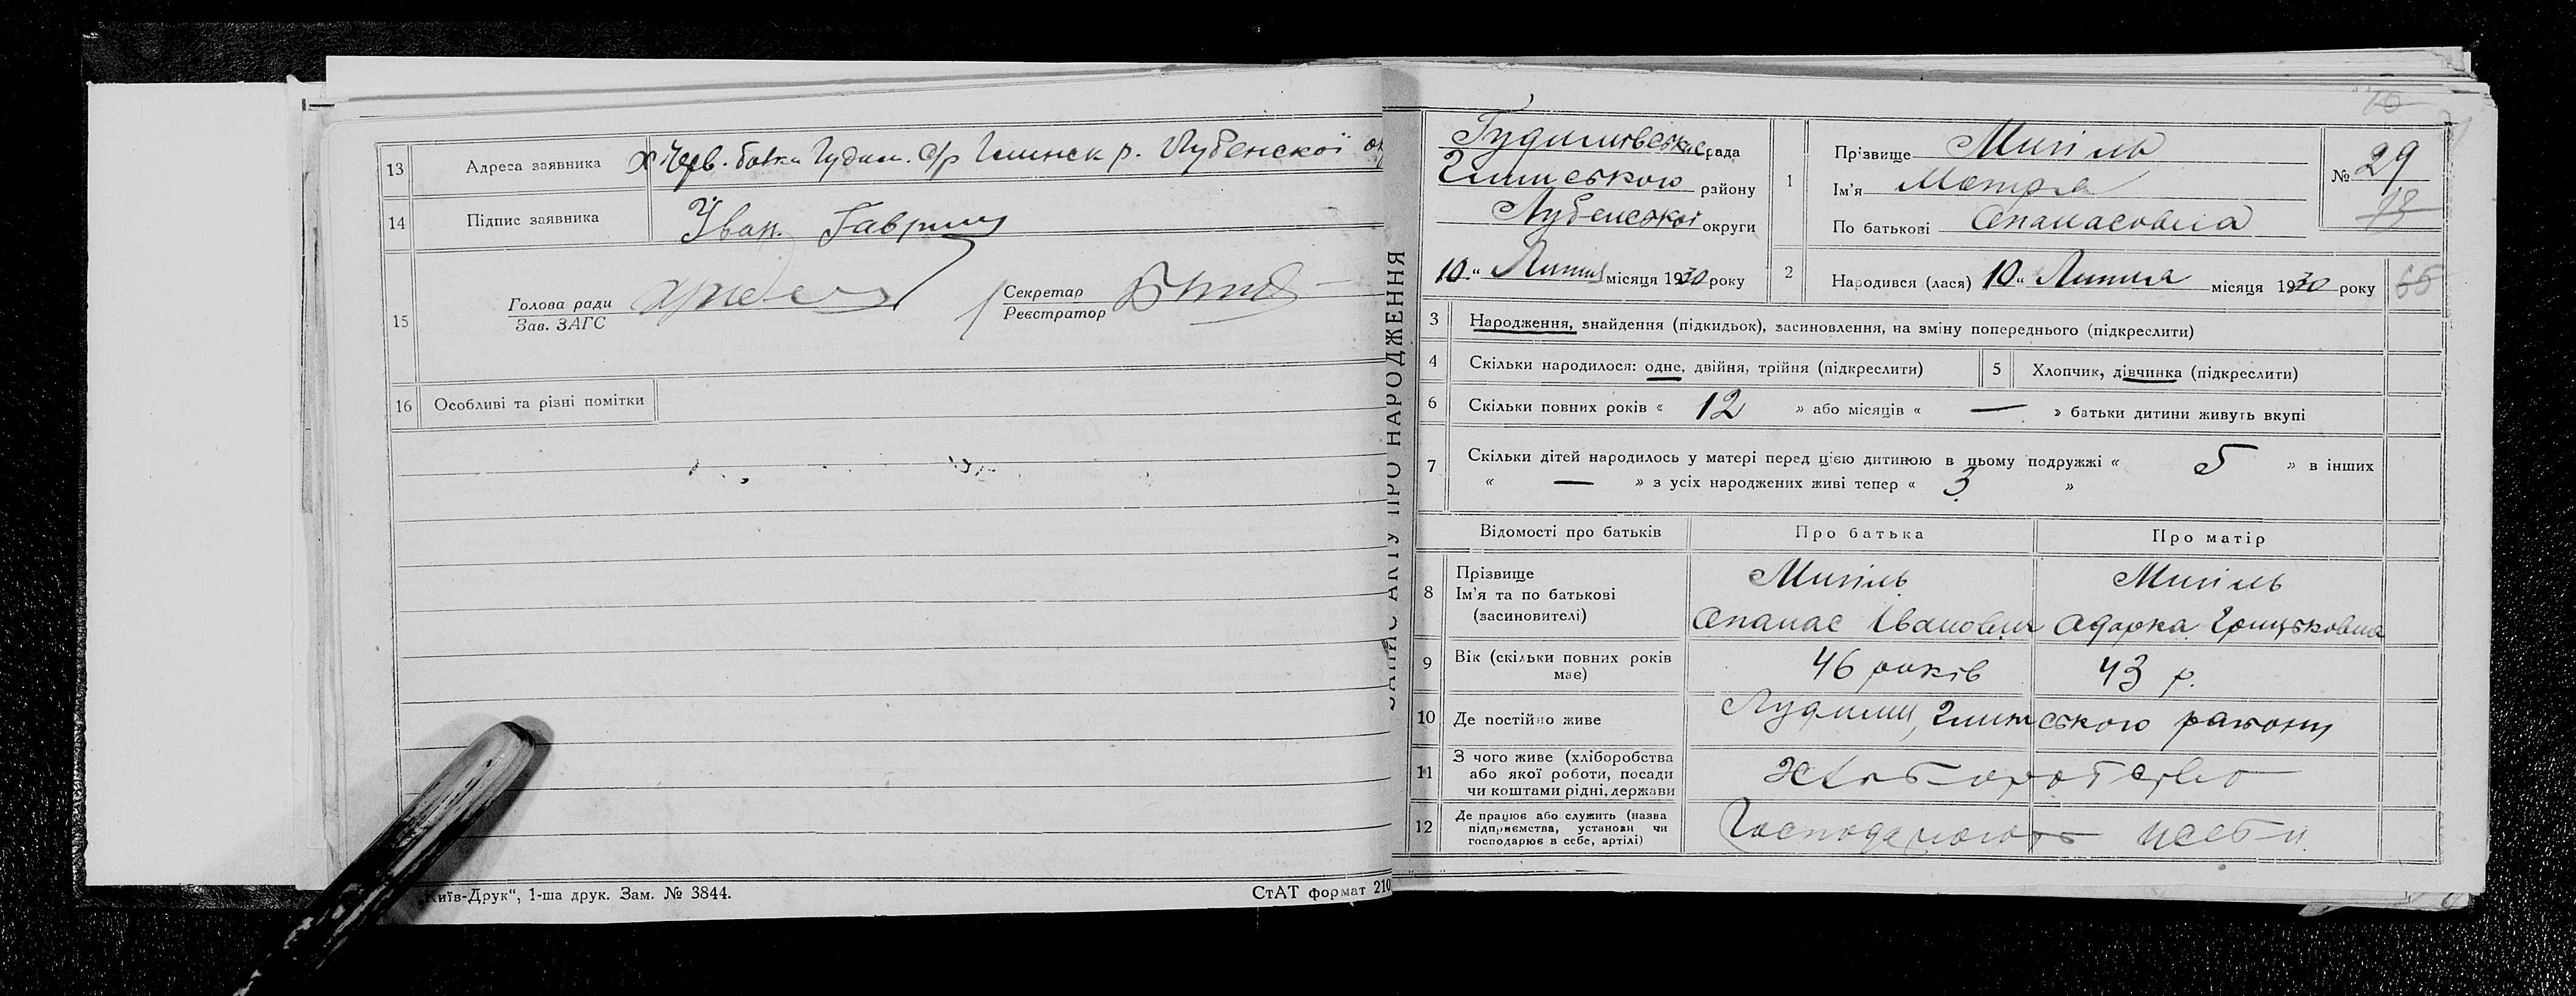 13 Адреса заявника х Черв. балка Гудим. с/р Глинськ р. Лубенської ок
14 Підпис заявника Іван Гаврищ
15 Голова ради
Зав. ЗАГС
Секретар
Реєстратор
16 Особливі та різні помітки
„Київ-Друк“, 1-ша друк. Зам. № 3844.
СтАТ формат 210
ЗАПИС АКТУ ПРО НАРОДЖЕННЯ
рада
Глинського району
Лубенської округи
10 „ Липня місяця 1930 року
1 Прізвище Мигіль
Ім'я Мотря
По батькові Опанасовна
№ 29
2 Народився (лася) 10 „ Липня місяця 1930 року
3 Народження, знайдення (підкидьок), засиновлення, на зміну попереднього (підкреслити)
4 Скільки народилося: одне, двійня, трійня (підкреслити)
5 Хлопчик, дівчинка (підкреслити)
6 Скільки повних років « 12 » або місяців « — » батьки дитини живуть вкупі
7 Скільки дітей народилось у матері перед цією дитиною в цьому подружжі « 5 » в інших
« — » з усіх народжених живі тепер « 3 »
Відомості про батьків Про батька Про матір
8 Прізвище
Ім'я та по батькові
(засиновителі)
Мигіль
Опанас Іванович
Мигіль
Одарка Грицьковна
9 Вік (скільки повних років
має)
46 років
43 р.
10 Де постійно живе Гудими, Глинського району
11 З чого живе (хліборобства
або якої роботи, посади
чи коштами рідні, держави
Хліборобство
12 Де працює або служить (назва
підприємства, установи чи
господарює в себе, артілі)
Господарюють